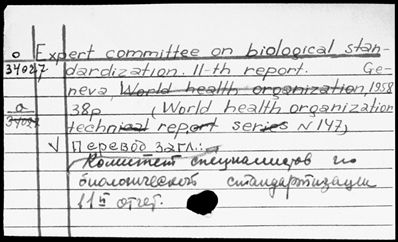 o Expert committee on biological stan-
34027 dardization. 11-th report. Ge-
neva, World health organization, 1958
a 38p. (World health organization
34027 technical report series N 147)
V Перевод загл.:
Комитет специалистов по
биологической стандартизации
11й отчет.